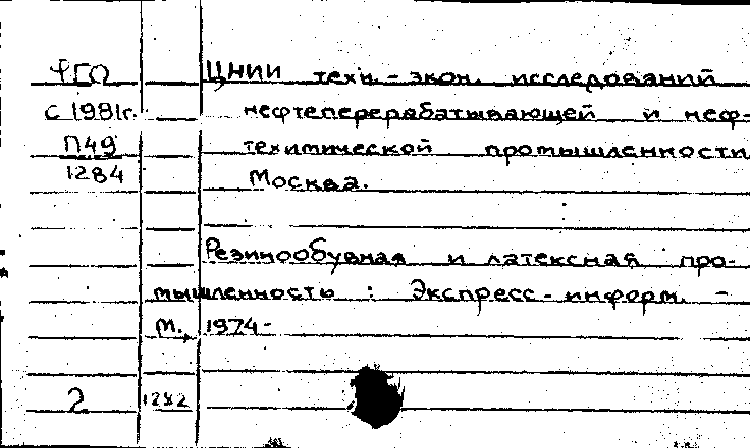 ФГО ЦНИИ техн.-экон. исследований
с 1981г. нефтеперерабатывающей и неф-
П49 техимической промышленности
1284 Москва.
Резинообувная и латексная про-
мышленность : Экспресс-информ. -
М., 1974-
2